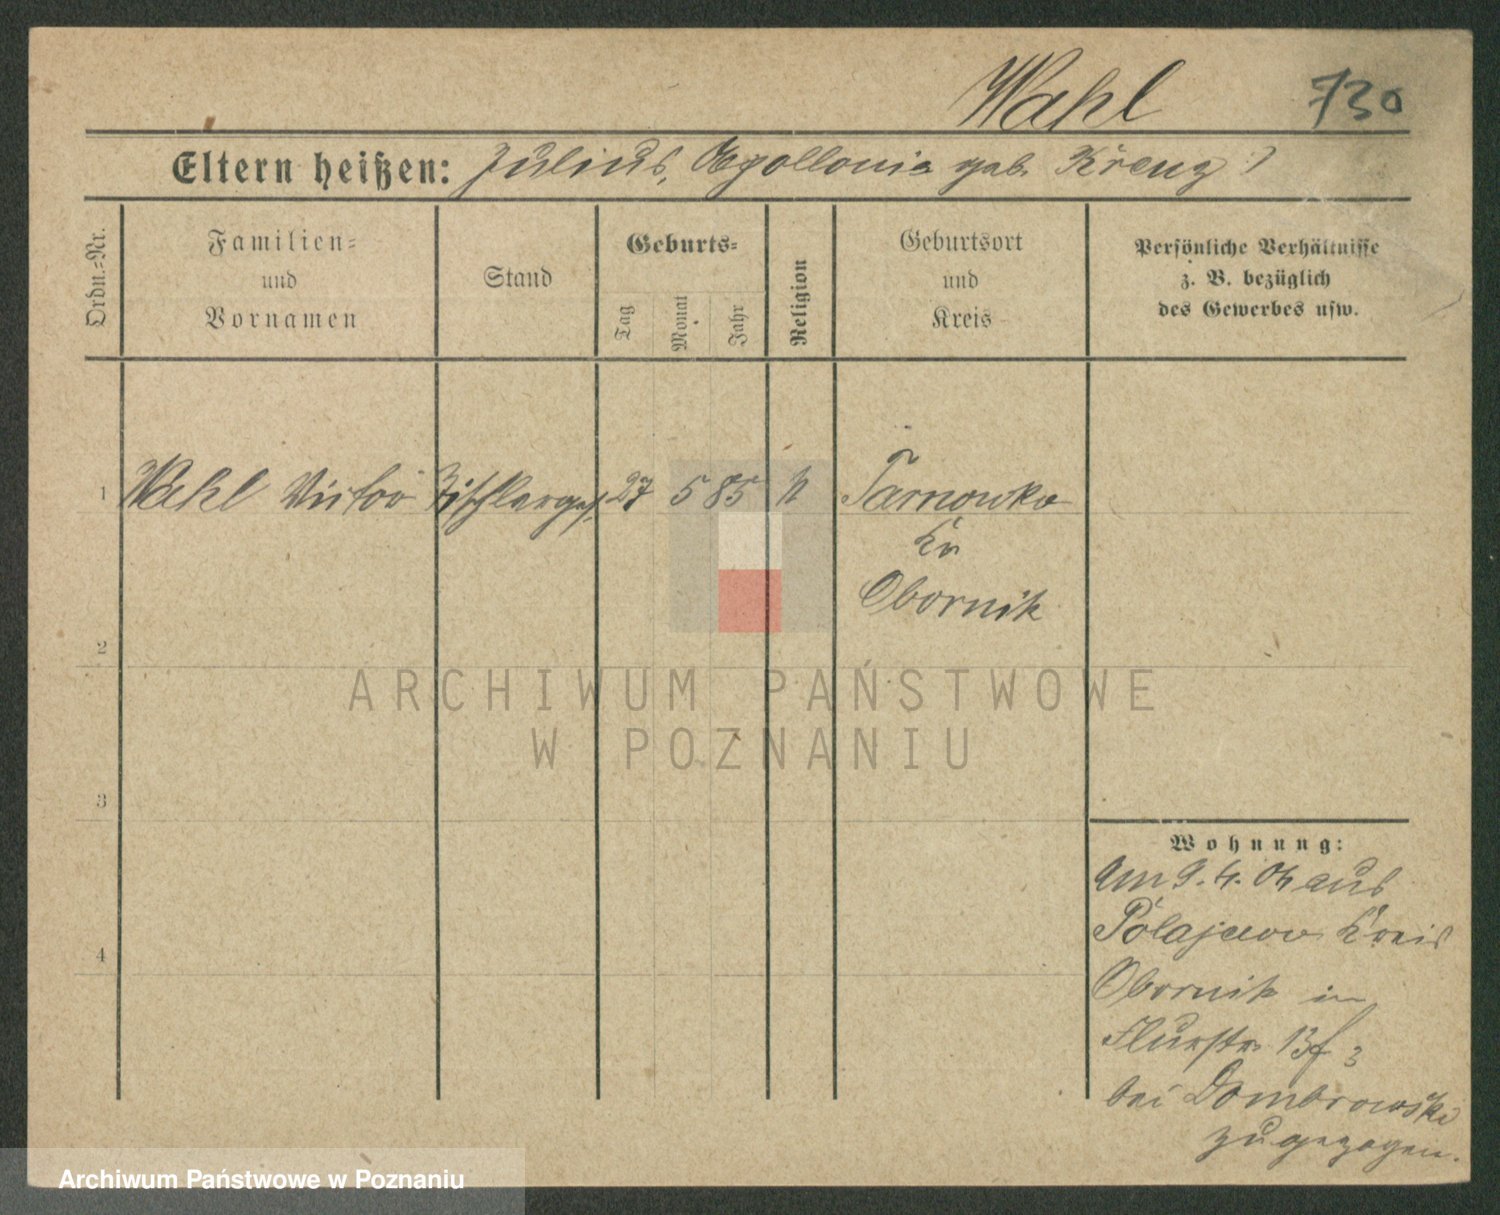 Wahl 730
Eltern heißen: Julius, Apollonia geb. Kreuz
Ordn.-Nr.
Familien-
und
Vornamen
Stand
Geburts-
Tag
Monat
Jahr
Religion
Geburtsort
und
Kreis
Persönliche Verhältnisse
z. B. bezüglich
des Gewerbes usw.
1 Wahl Victor Tischlerges. 27 5 85 Tarnowko
Kr
Obornik
2
3
4
Wohnung:
Am 9. 4. 04 aus
Polajewo Kreis
Obornik in
Flurstr. 13
bei Dombrowski
zugezogen.
ARCHIWUM PAŃSTWOWE
W POZNANIU
Archiwum Państwowe w Poznaniu